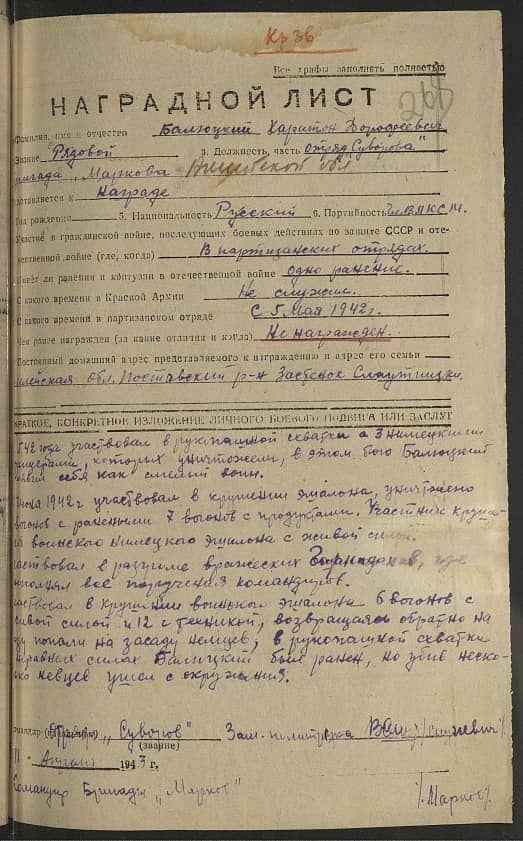 Кр Зв
Все графы заполнять полностью
НАГРАДНОЙ ЛИСТ
Фамилия, имя и отчество Балюцкий Харитон Дорофеевич
Звание Рядовой 3. Должность, часть отряд Суворова"
ригада „Маркова Вилейской обл
дставляется к Награде
Год рождения 5. Национальность Русский 6. Партийность чл. ВЛКСМ.
Участие в гражданской войне, последующих боевых действиях по защите СССР и оте-
чественной войне (где, когда) В партизанских отрядах.
Имеет ли ранения и контузии в отечественной войне одно ранение.
С какого времени в Красной Армии Не служил.
С какого времени в партизанском отряде С 5 Мая 1942 г.
Чем ранее награжден (за какие отличия и когда) Не награжден.
Постоянный домашний адрес представляемого к награждению и адрес его семьи
илейская обл. Поставский р-н Застенок
КРАТКОЕ, КОНКРЕТНОЕ ИЗЛОЖЕНИЕ ЛИЧНОГО БОЕВОГО ПОДВИГА ИЛИ ЗАСЛУГ
42 года участвовал в рукопашной схватки с 3 Нимецкими
которых уничтожели, в этом бою Балюцкий
себя как смелый воин.
1942 г участвовал в крушении эшалона, уничтожено
вогонов с ранеными 7 вогонов с продуктами. Участник круше-
воинского Нимецкого эшалона с живой силой.
аствовал в разгроме вражеских Гарнизонов, где
выполнял все поручения командиров.
аствовал в крушении воинского эшалона 6 вогонов с
живой силой и 12 с техникой, возвращаясь обратно на
попали на засаду немцев, в рукопашной схватки
неравных силах Балюцкий был ранен, но убив неско-
ко немцев ушел с окружения.
омандир отряда „Суворов" Зам. политрука
(звание)
11 - Апреля 1943 г.
Командир Бригады „Марков" /Марков/.